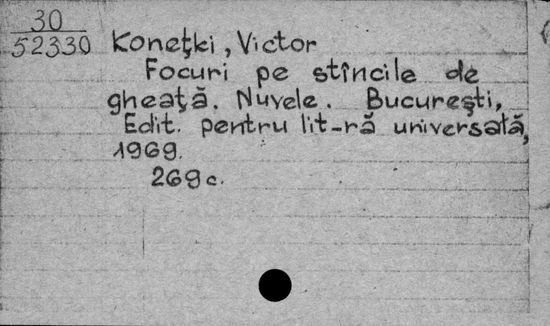 30
52330
Konețki, Victor
Focuri pe stîncile de
gheață. Nuvele. București,
Edit. pentru lit-ră universală,
1969.
269 c.